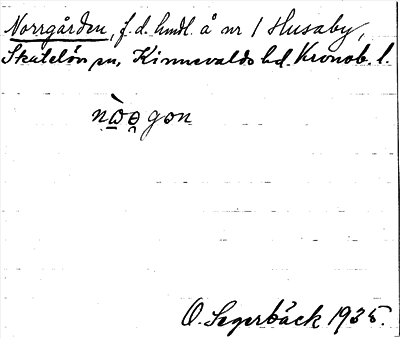 Norrgården, f.d. hmdl. å nr 1 Husaby,
Skatelöv sn, Kinnevalds hd. Kronob. l.
O. Segerbäck 1935.